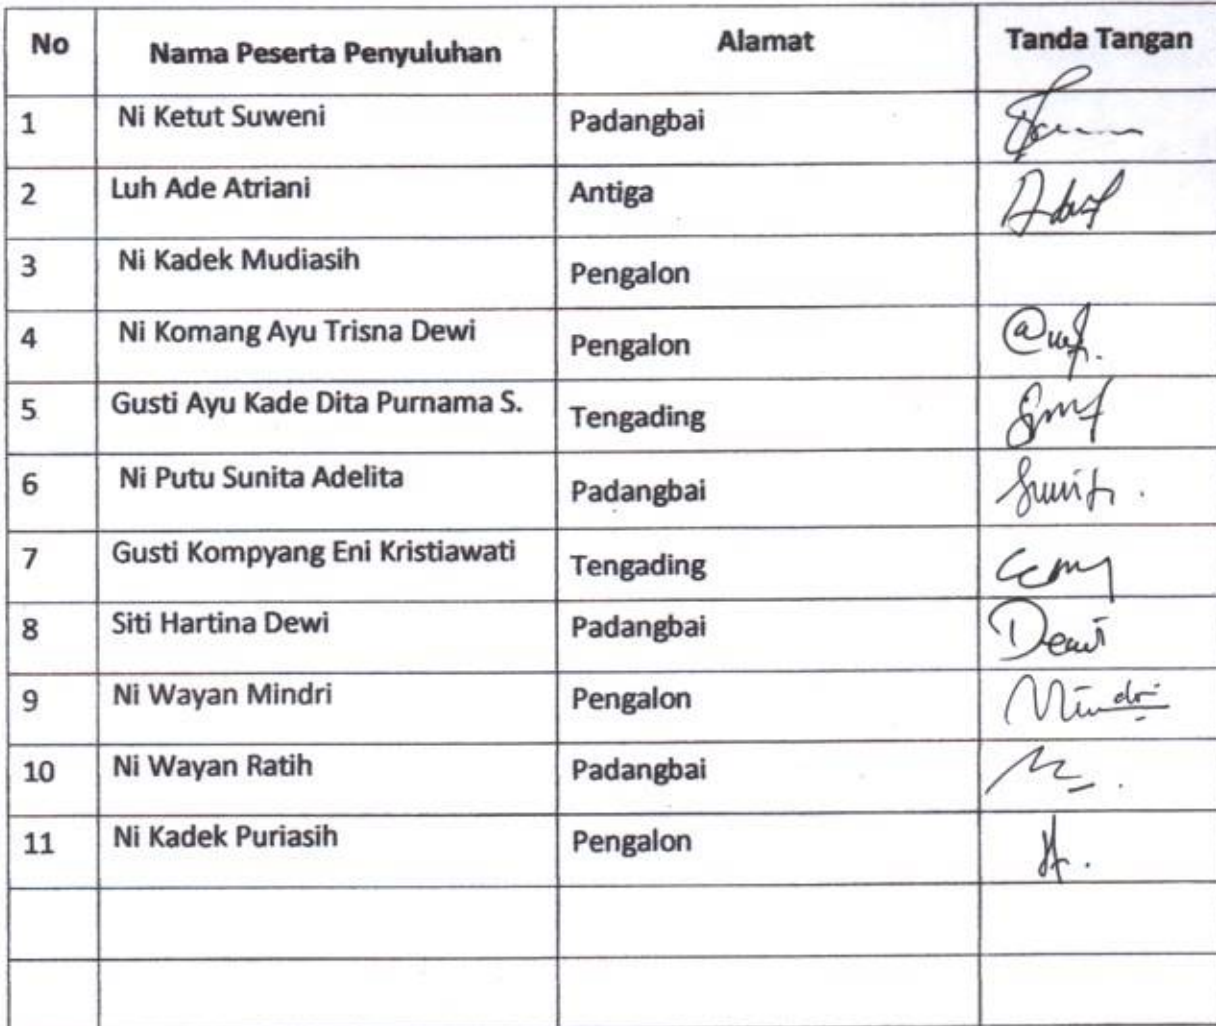 No Nama Peserta Penyuluhan Alamat Tanda Tangan
1 Ni Ketut Suweni Padangbai
2 Luh Ade Atriani Antiga
3 Ni Kadek Mudiasih Pengalon
4 Ni Komang Ayu Trisna Dewi Pengalon
5 Gusti Ayu Kade Dita Purnama S. Tengading
6 Ni Putu Sunita Adelita Padangbai
7 Gusti Kompyang Eni Kristiawati Tengading
8 Siti Hartina Dewi Padangbai Dewi
9 Ni Wayan Mindri Pengalon Mindri
10 Ni Wayan Ratih Padangbai
11 Ni Kadek Puriasih Pengalon